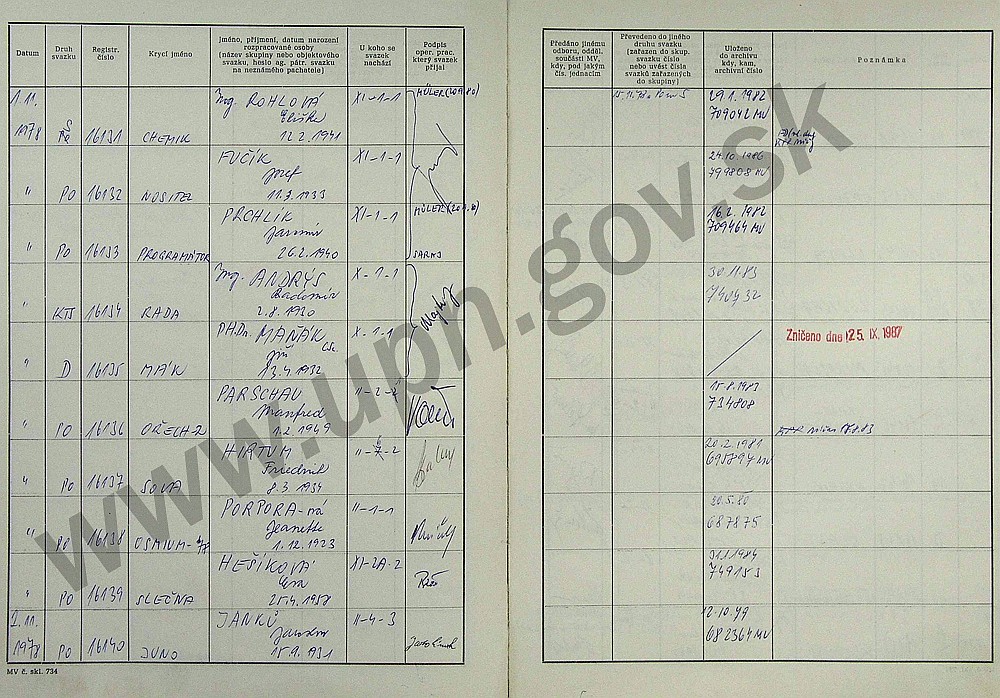 Datum
Druh svazku
Registr. číslo
Krycí jméno
Jméno, příjmení, datum narození
rozpracované osoby
(název skupiny nebo objektového
svazku, heslo ag. pátr. svazku
na neznámého pachatele)
U koho se svazek nachází
Podpis oper. prac. který svazek přijal
Předáno jinému
odboru, odděl.
součásti MV,
kdy, pod jakým
čís. jednacím
Převedeno do jiného
druhu svazku
(zařazen do skup.
svazku číslo
nebo uvést čísla
svazků zařazených
do skupiny)
Uloženo
do archivu
kdy, kam,
archivní číslo
Poznámka
1.11. 1978 16131 CHEMIK Ing. ROHLOVÁ Eliška 12.2.1941 XI-1-1 MÜLER 29.1.1982 709042 MV
" PO 16132 NOSITEL FUČÍK Josef XI-1-1 24.10.1986 799808 MV
" PO 16133 PROGRAMÁTOR PRCHLÍK Jaromír 26.2.1940 XI-1-1 MÜLER 16.2.1982 709464 MV
" 16134 RADA Ing. ANDRÝS Radomír 2.8.1920 X-1-1 30.11.83 740432
" D 16135 MÁK PhDr. MAŇÁK Jiří CSc. 3.4.1932 X-1-1 Zničeno dne 25. IX. 1987
" PO 16136 OŘECH-2 PARSCHAU Manfred 1.2.1949 15.8.1983 734808
" PO 16137 SOVA HIRTUM Friedrich 8.3.1934 20.2.1981 695894 MV
" PO 16138 PORPORA-ná Jeanette 1.12.1923 II-1-1 20.5.80 687875
" PO 16139 SLEČNA HEŠÍKOVÁ Eva 25.4.1958 XI-2A-2 749153
2.11. 1978 PO 16140 JUNO JANKŮ Jaroslav 15.9.1931 II-4-3 12.10.79 682364 MV
MV č. skl. 734
www.upn.gov.sk